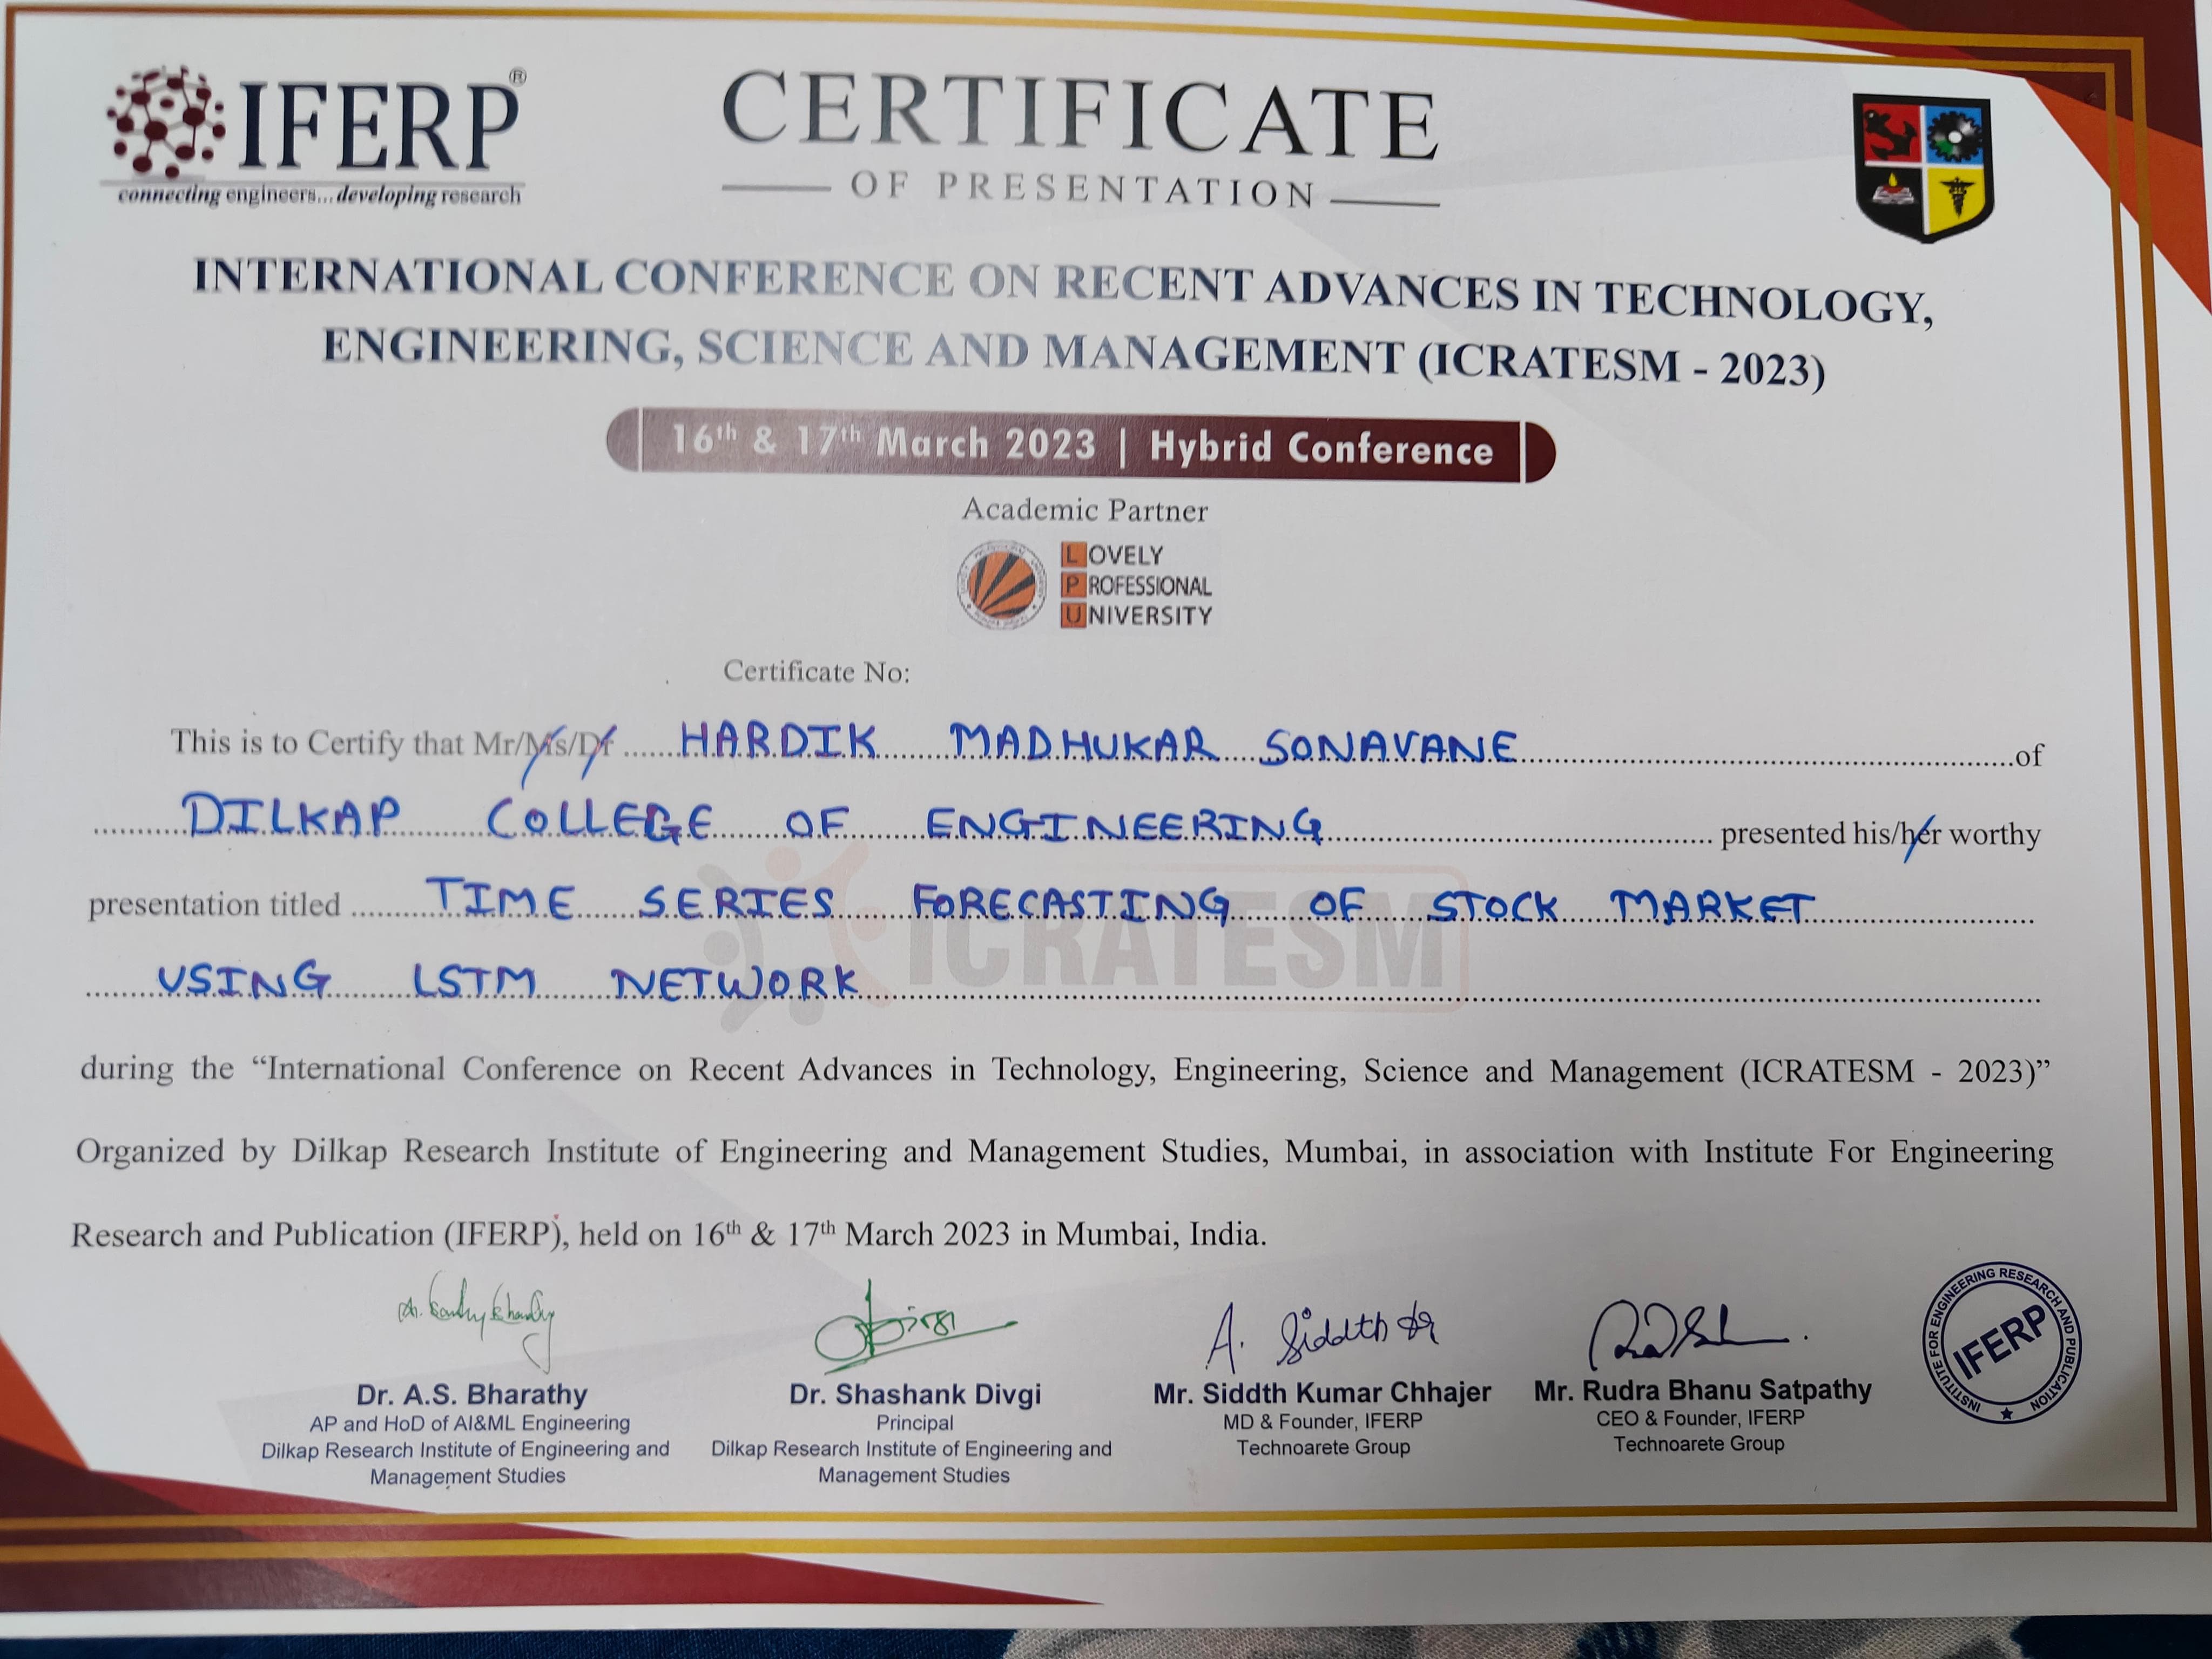 IFERP®
connecting engineers...developing research
CERTIFICATE
OF PRESENTATION
INTERNATIONAL CONFERENCE ON RECENT ADVANCES IN TECHNOLOGY,
ENGINEERING, SCIENCE AND MANAGEMENT (ICRATESM - 2023)
16th & 17th March 2023 | Hybrid Conference
Academic Partner
LOVELY
PROFESSIONAL
UNIVERSITY
Certificate No:
This is to Certify that Mr/Ms/Dr HARDIK MADHUKAR SONAVANE of
DILKAP COLLEGE OF ENGINEERING presented his/her worthy
presentation titled TIME SERIES FORECASTING OF STOCK MARKET
USING LSTM NETWORK
ICRATESM
during the “International Conference on Recent Advances in Technology, Engineering, Science and Management (ICRATESM - 2023)”
Organized by Dilkap Research Institute of Engineering and Management Studies, Mumbai, in association with Institute For Engineering
Research and Publication (IFERP), held on 16th & 17th March 2023 in Mumbai, India.
A. Siddth
Dr. A.S. Bharathy
AP and HoD of AI&ML Engineering
Dilkap Research Institute of Engineering and
Management Studies
Dr. Shashank Divgi
Principal
Dilkap Research Institute of Engineering and
Management Studies
Mr. Siddth Kumar Chhajer
MD & Founder, IFERP
Technoarete Group
Mr. Rudra Bhanu Satpathy
CEO & Founder, IFERP
Technoarete Group
INSTITUTE FOR ENGINEERING RESEARCH AND PUBLICATION
IFERP